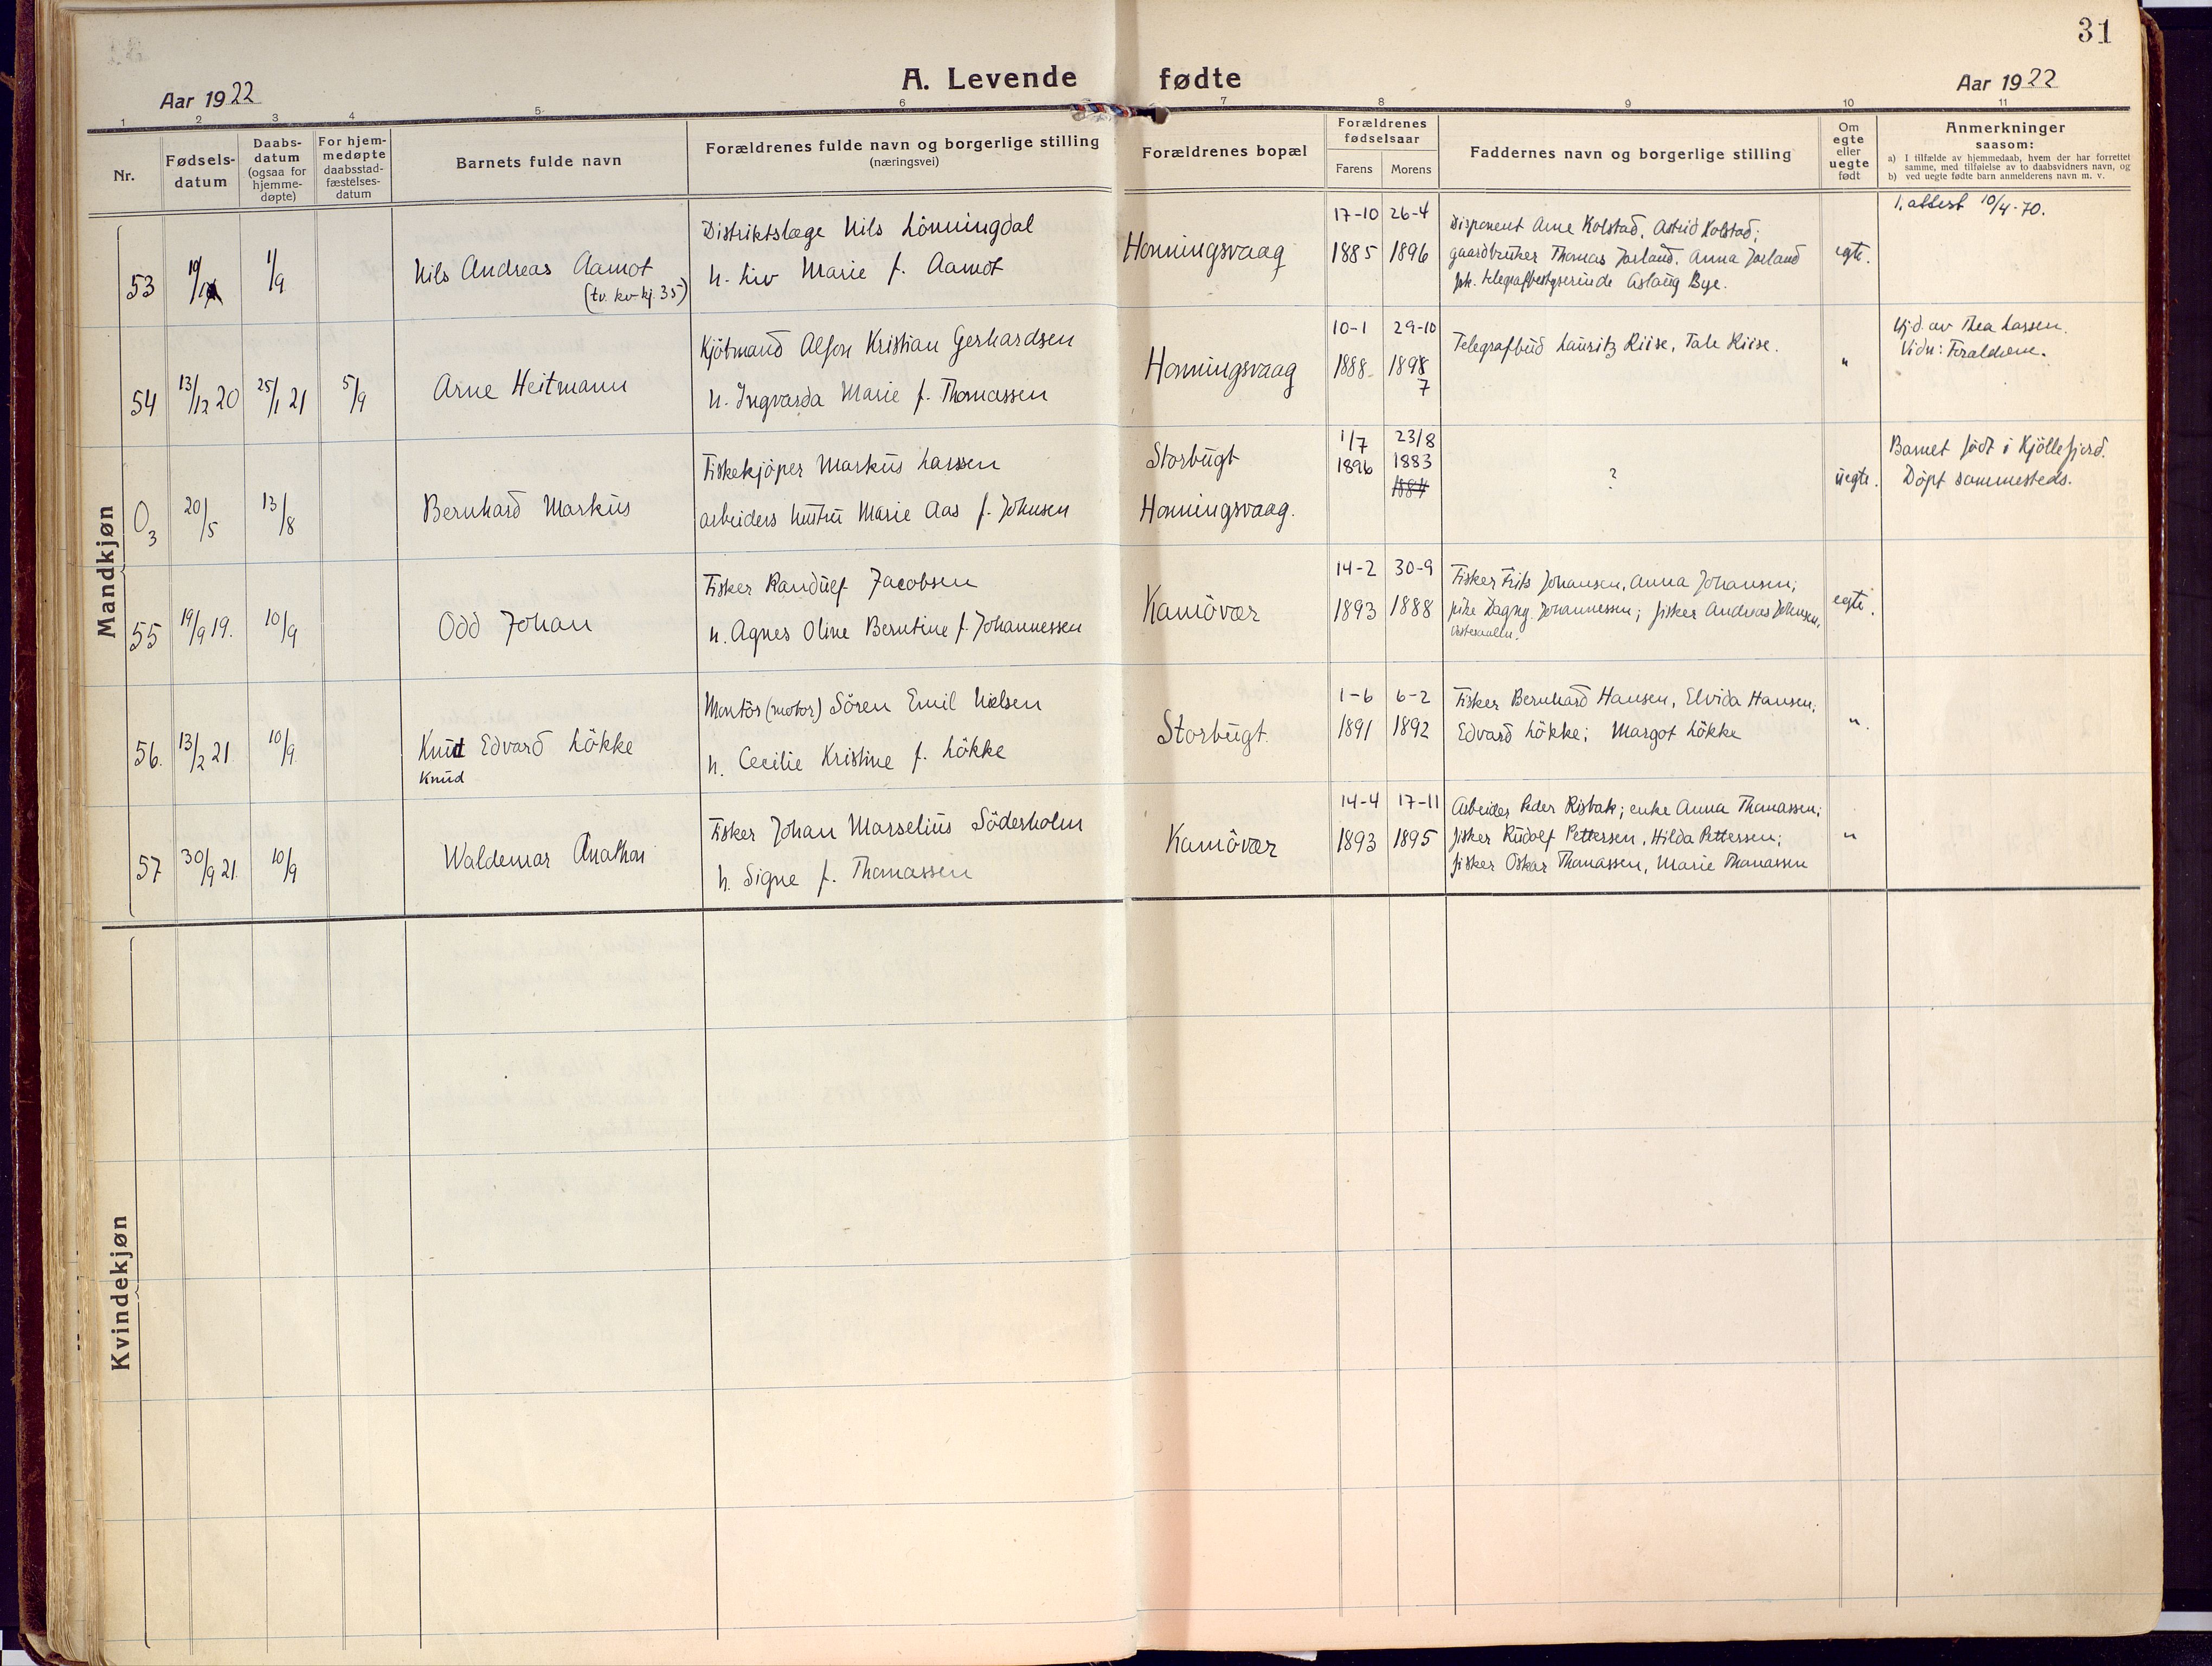 31
A. Levende fødte
Aar 1922
Aar 1922
1 2 3 4 5 6 7 8 9 10 11
Nr.
Fødsels-
datum
Daabs-
datum
(ogsaa for
hjemme-
døpte)
For hjem-
medøpte
daabsstad-
fæstelses-
datum
Barnets fulde navn
Forældrenes fulde navn og borgerlige stilling
(næringsvei)
Forældrenes bopæl
Forældrenes
fødselsaar
Farens Morens
Faddernes navn og borgerlige stilling
Om
egte
eller
uegte
født
Anmerkninger
saasom:
a) I tilfælde av hjemmedaab, hvem der har forrettet
samme, med tilføielse av to daabsvidners navn, og
b) ved uegte fødte barn anmelderens navn m. v.
Mandkjøn
53
1/9
Nils Andreas Aamot
(tv. kv-kj. 35)
Distriktslæge Nils Lönningdal
h. Liv Marie f. Aamot
Honningsvaag
17-10 26-4
1885 1896
Disponent Arne Kolstad, Astrid Kolstad;
gaardbruker Thomas Jarland, Anna Jarland
frk. telegrafbestyrerinde Aslaug Bye.
egte.
1. attest 10/4-70.
54
13/12 20
25/1 21
5/9
Arne Heitmann
Kjöbmand Alfon Kristian Gerhardsen
h. Ingvarda Marie f. Thomassen
Honningsvaag
10-1 29-10
1888 1898
7
Telegrafbud Lauritz Riise, Tale Riise.
"
Hj.d. av Thea Larssen.
Vidn: Foraldrene.
O3
20/5
13/8
Bernhard Markus
Fiskekjöper Markus Larssen
arbeiders hustru Marie Aas f. Johnsen
Storbugt
Honningsvaag.
1/7 23/8
1896 1883
1884
?
uegte.
Barnet född i Kjöllefjord.
Döpt sammesteds.
55
19/9 19.
10/9
Odd Johan
Fisker Randulf Jacobsen
h. Agnes Oline Berntine f. Johannessen
Kamövær
14-2 30-9
1893 1888
Fisker Frits Johansen, Anna Johansen;
pike Dagny Johannessen; fisker Andreas Johnsen,
Vesteraalen.
egte.
56.
13/2 21
10/9
Knut Edvard Lökke
Knud
Montör (motor) Sören Emil Nielsen
h. Cecilie Kristine f. Lökke
Storbugt
1-6 6-2
1891 1892
Fisker Bernhard Hansen, Elvida Hansen;
Edvard Lökke; Margot Lökke
"
57
30/9 21
10/9
Waldemar Anathon
Fisker Johan Marselius Söderholm
h. Signe f. Thomassen
Kamövær
14-4 17-11
1893 1895
Arbeider Peder Risbak; enke Anna Thomassen;
fisker Rudolf Pettersen, Hilda Pettersen;
fisker Oskar Thomassen, Marie Thomassen
"
Kvindekjøn